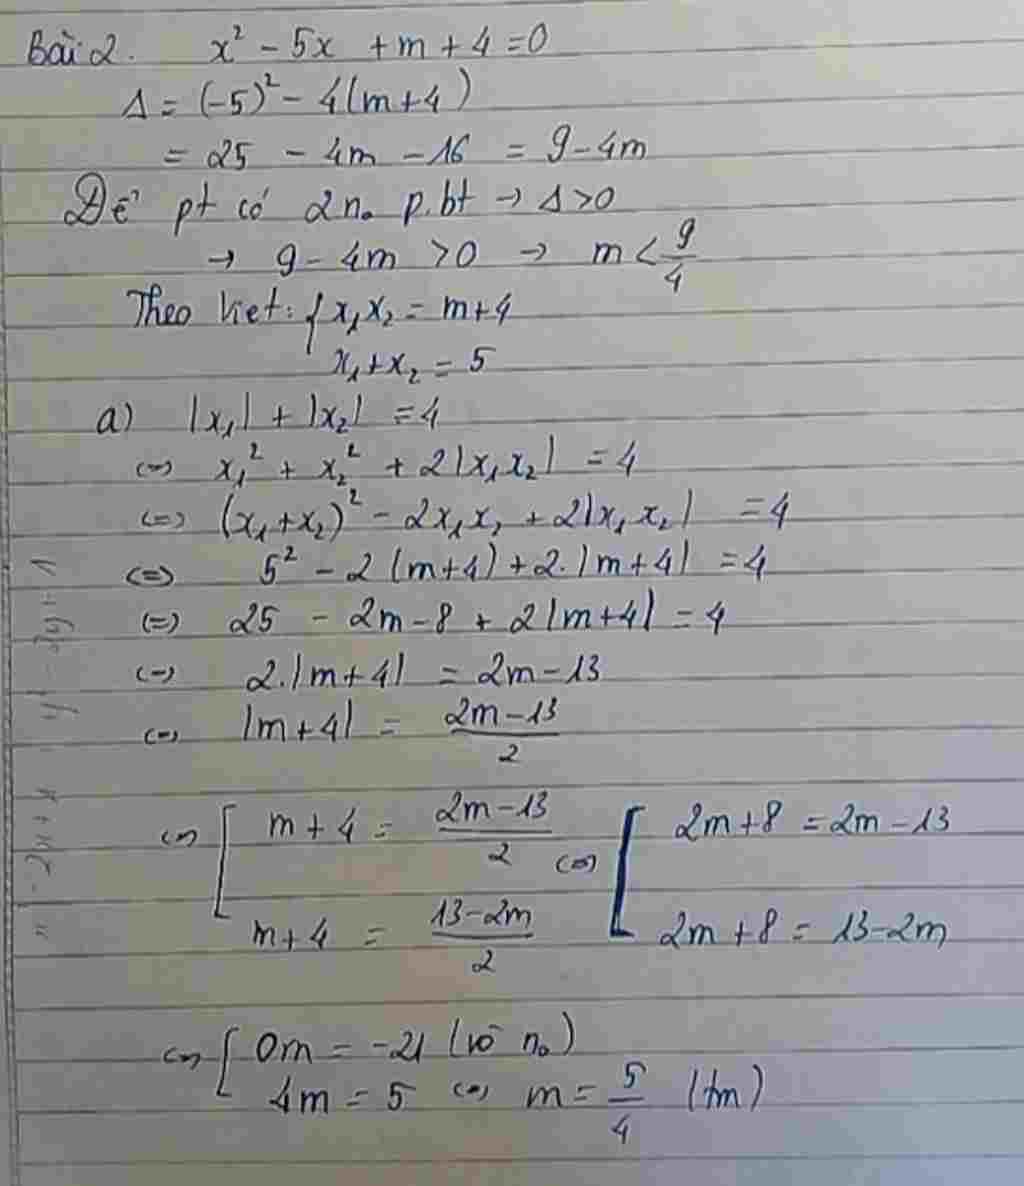 Bài 2. x² - 5x + m + 4 = 0
Δ = (-5)² - 4(m+4)
= 25 - 4m - 16 = 9 - 4m
Để pt có 2 n₀ p.bt → Δ > 0
→ 9 - 4m > 0 → m < 9/4
Theo Viet: { x₁x₂ = m+4
x₁+x₂ = 5
a) |x₁| + |x₂| = 4
(=) x₁² + x₂² + 2|x₁x₂| = 4
(=) (x₁+x₂)² - 2x₁x₂ + 2|x₁x₂| = 4
(=) 5² - 2(m+4) + 2.|m+4| = 4
(=) 25 - 2m - 8 + 2|m+4| = 4
(=) 2.|m+4| = 2m - 13
(=) |m+4| = (2m-13)/2
(=) [ m + 4 = (2m-13)/2 (=) [ 2m+8 = 2m - 13
m + 4 = (13-2m)/2 2m + 8 = 13-2m
(=) [ 0m = -21 (vô n₀)
4m = 5 (=) m = 5/4 (tm)